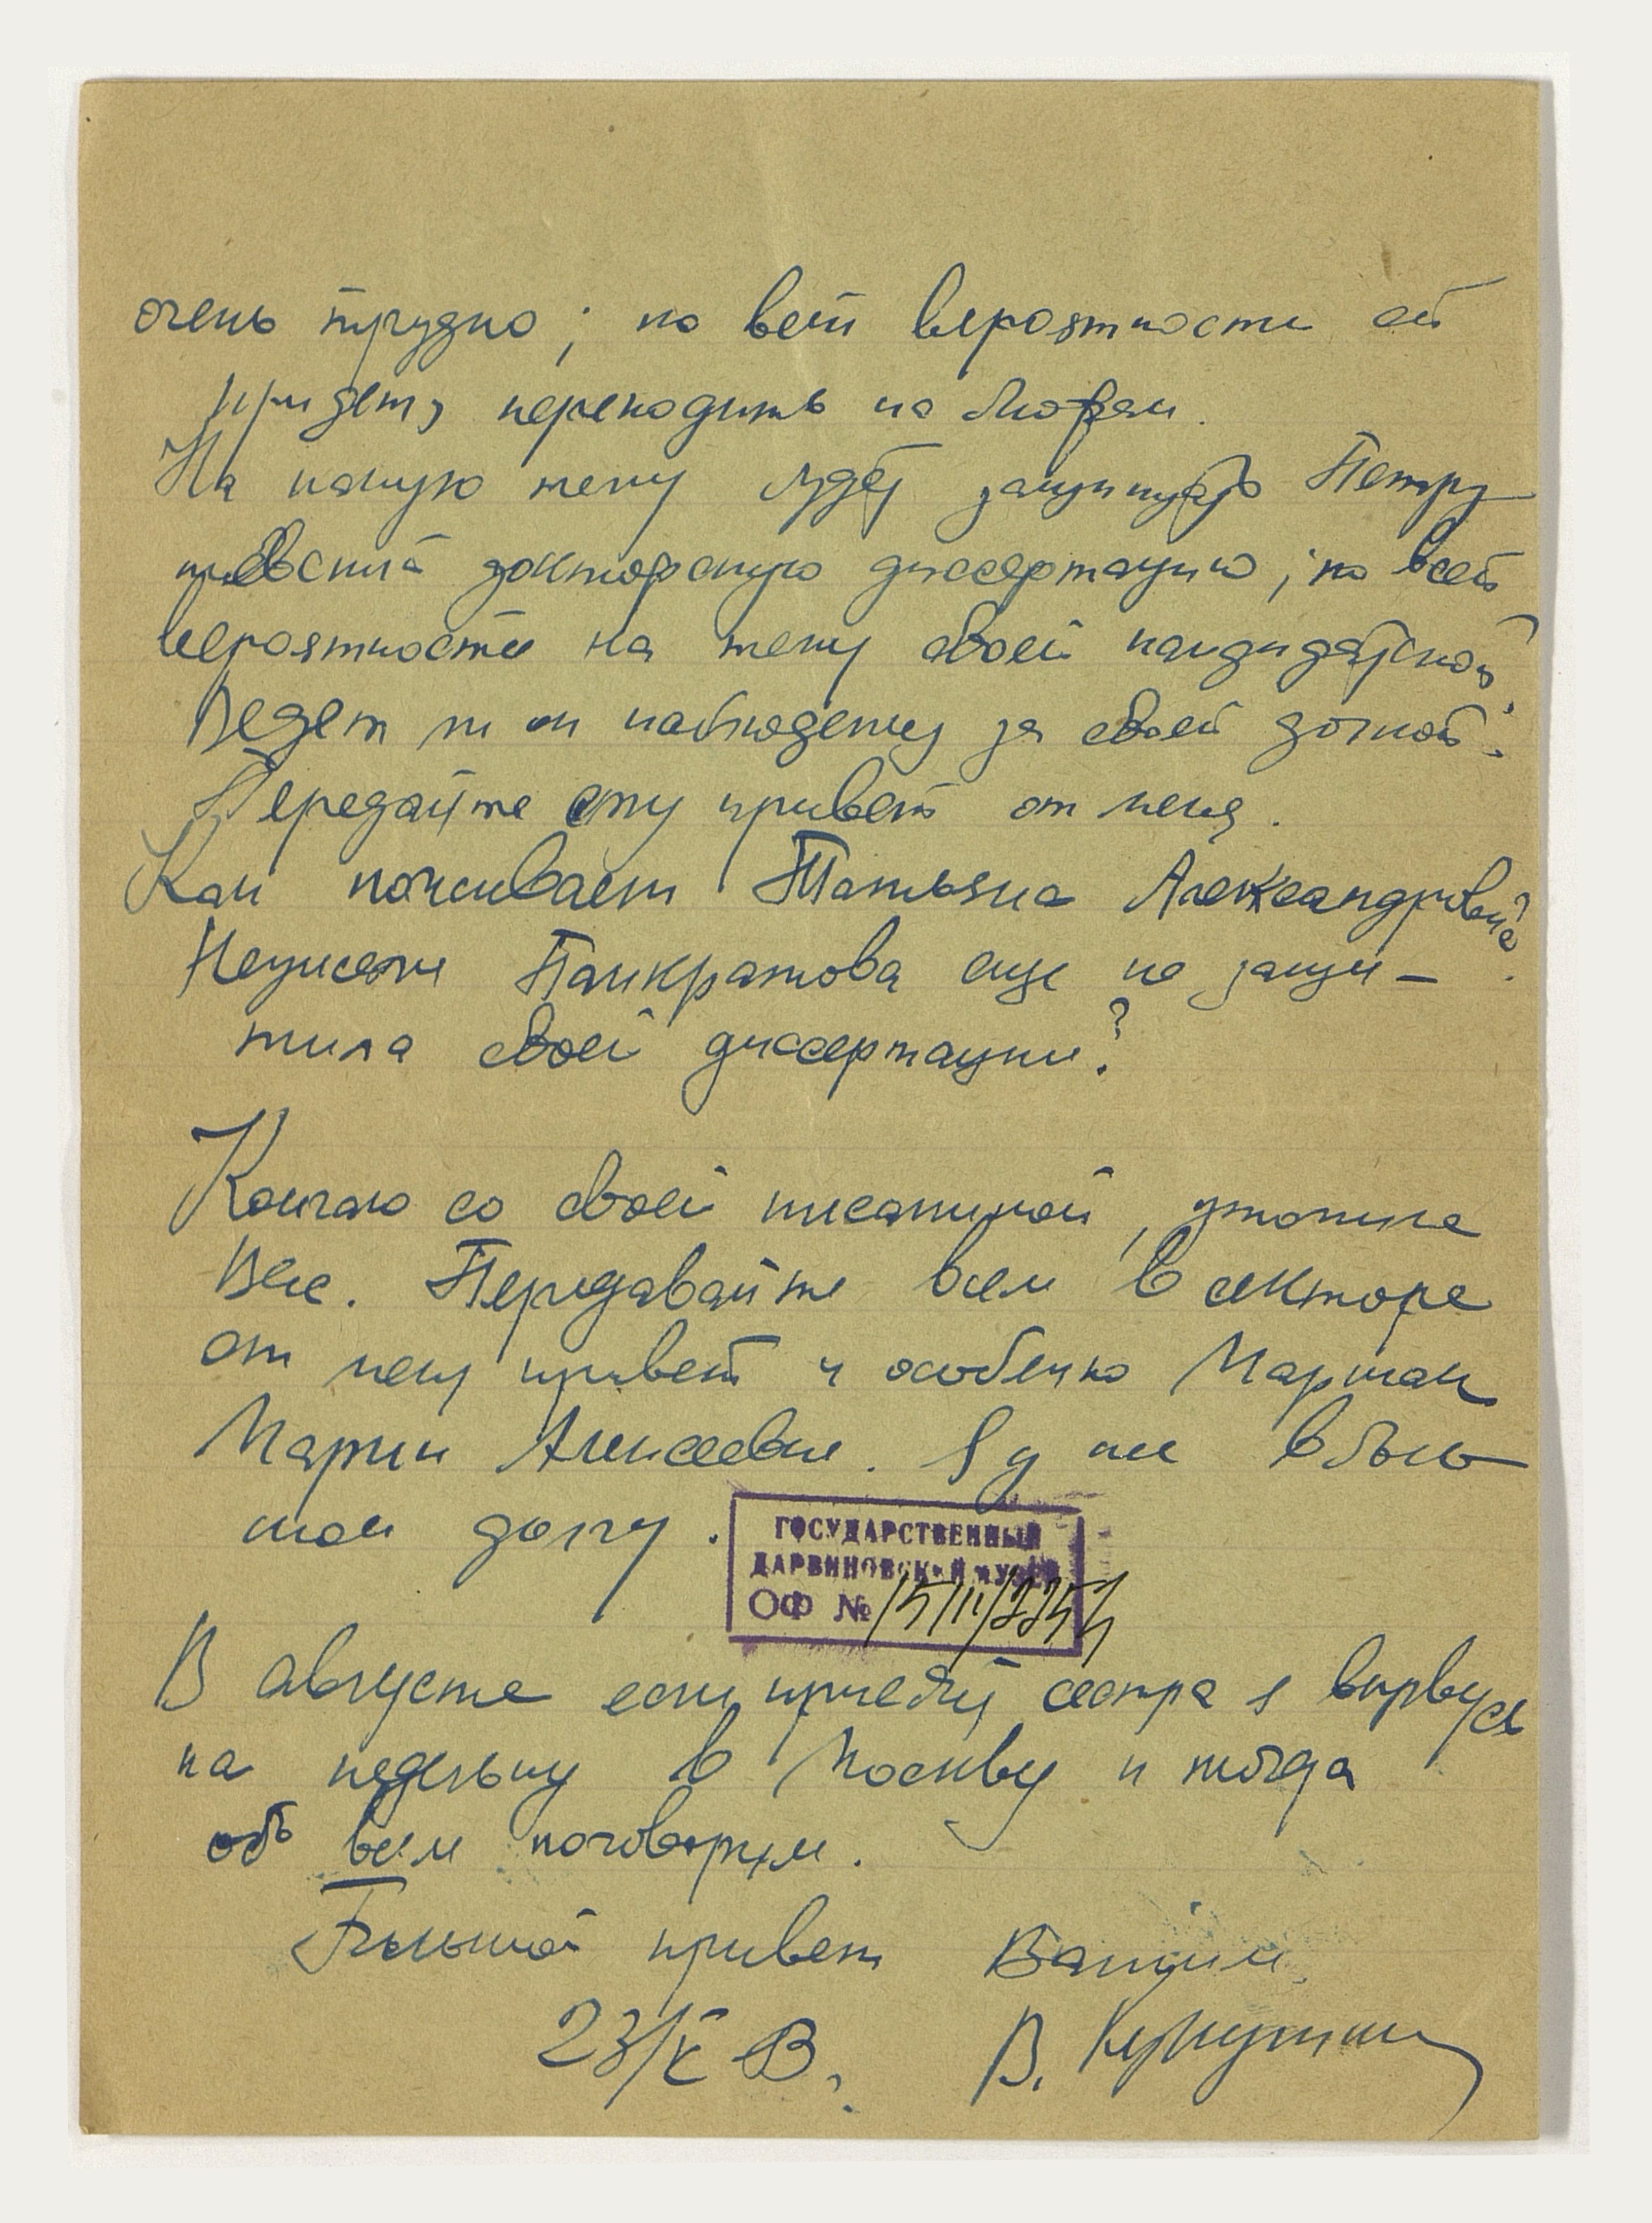 очень трудно; по всей вероятности ей
придется переходить на людей.
На какую тему будет защищать Петру
шевский докторскую диссертацию; по всей
вероятности на тему своей кандидатской
Ведет ли он наблюдения за своей дочкой?
Передайте ему привет от меня.
Как поживает Татьяна Александровна?
Неужели Панкратова еще не защи-
тила своей диссертации?
Кончаю со своей писаниной, утомила
Вас. Передавайте всем в секторе
от меня привет и особенно
Марии Алексеевне. Я у нее в боль
шом долгу.
ГОСУДАРСТВЕННЫЙ
ДАРВИНОВСКИЙ МУЗЕЙ
ОФ №
В августе если приедет сестра я вырвусь
на недельку в Москву и тогда
обо всем поговорим.
Большой привет
23/V В.